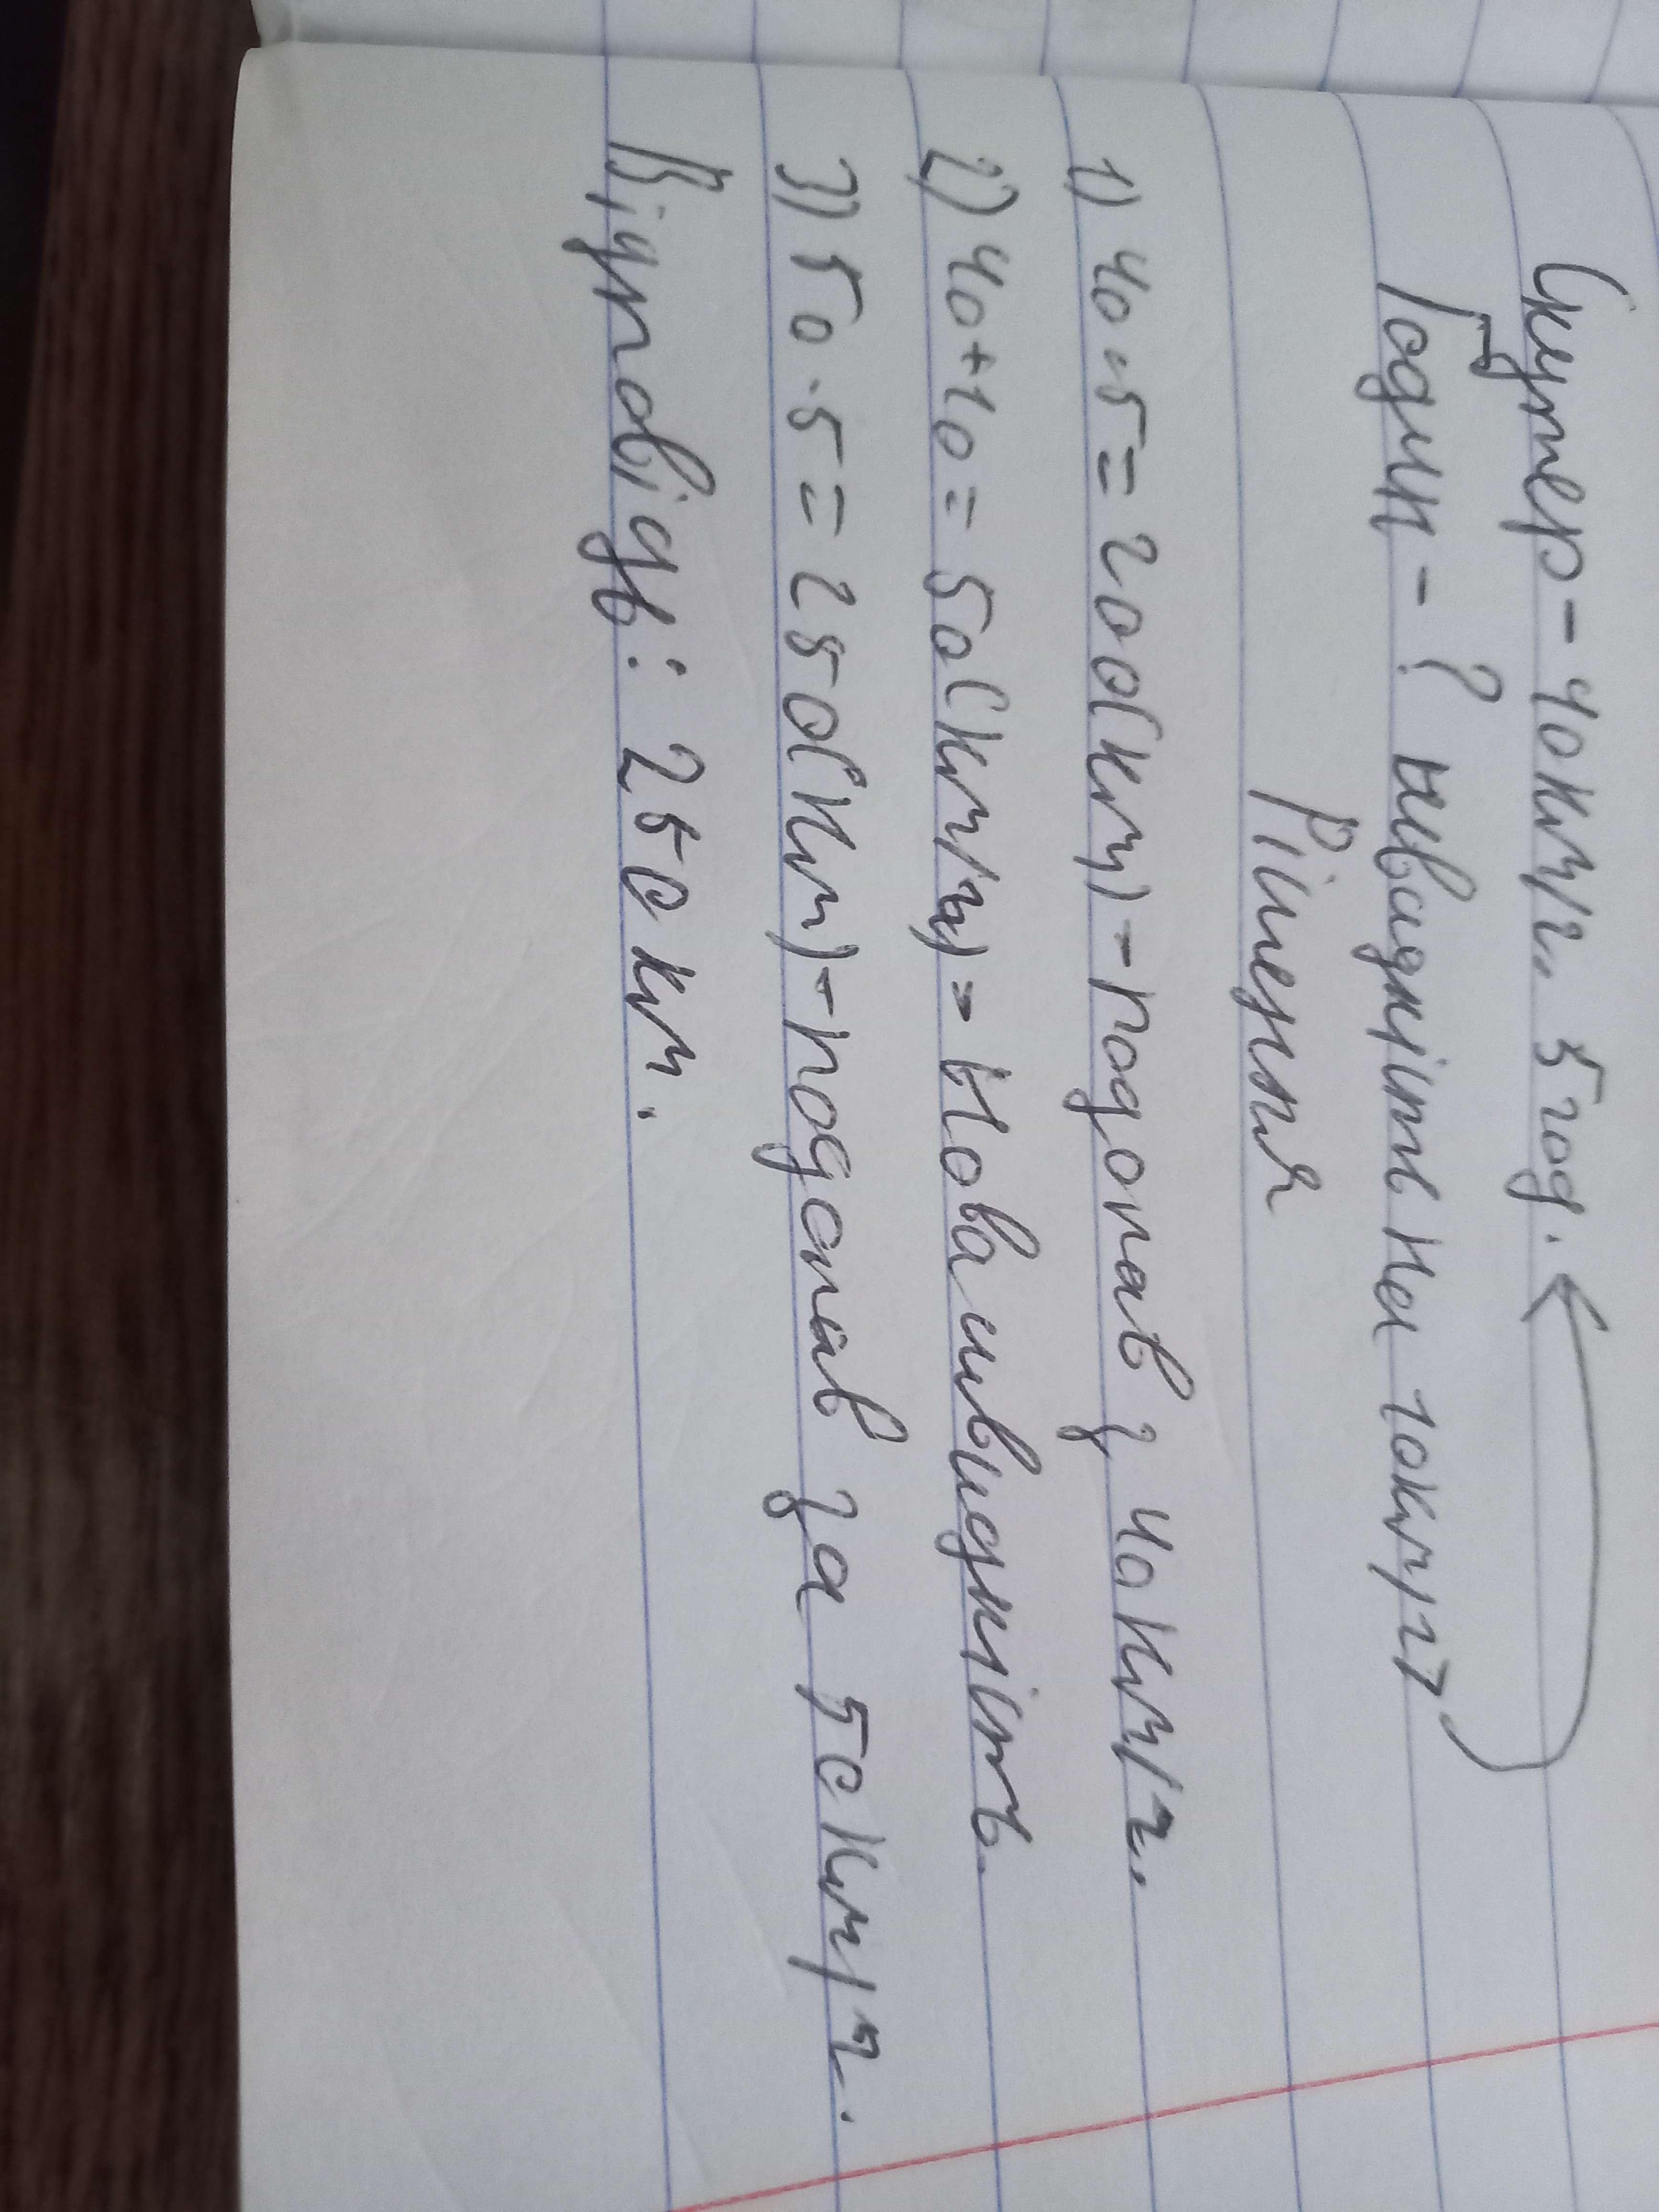 Скутер - 40км/г. 5 год.
Годин - ? швидкість на 10км/г>
Рішення
1) 40·5=200(км)-подолав з 40км/г.
2) 40+10=50(км/г)- Нова швидкість.
3) 50·5=250(км)-подолав за 50км/г.
Відповідь: 250 км.